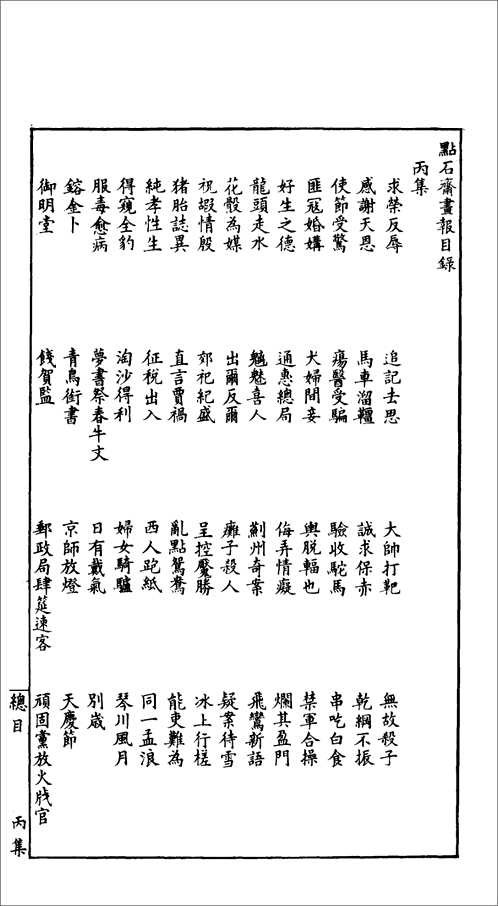 點石齋畫報目錄
丙集
求榮反辱
追記去思
大帥打靶
無故殺子
感謝天恩
馬車溜韁
誠求保赤
乾綱不振
使節受驚
瘍醫受騙
驗收駝馬
串吃白食
匪冦婚媾
犬婦間妾
輿脫輻也
禁軍合操
好生之德
通惠總局
侮弄情癡
爛其盈門
龍頭走水
魑魅喜人
薊州奇案
飛鸞新語
花骰為媒
出爾反爾
癱子殺人
疑案待雪
祝嘏情殷
郊祀紀盛
呈控魘勝
冰上行槎
猪胎誌異
直言賈禍
亂點駕鴦
能吏難為
純孝性生
征稅出入
西人跑紙
同一孟浪
得窺全豹
淘沙得利
婦女騎驢
琴川風月
服毒愈病
夢書祭春牛文
日有戴氣
別歲
鎔金卜
青鳥銜書
京師放燈
天慶節
御明堂
餞賀監
郵政局肆筵速客
頑固黨放火戕官
總目
丙集